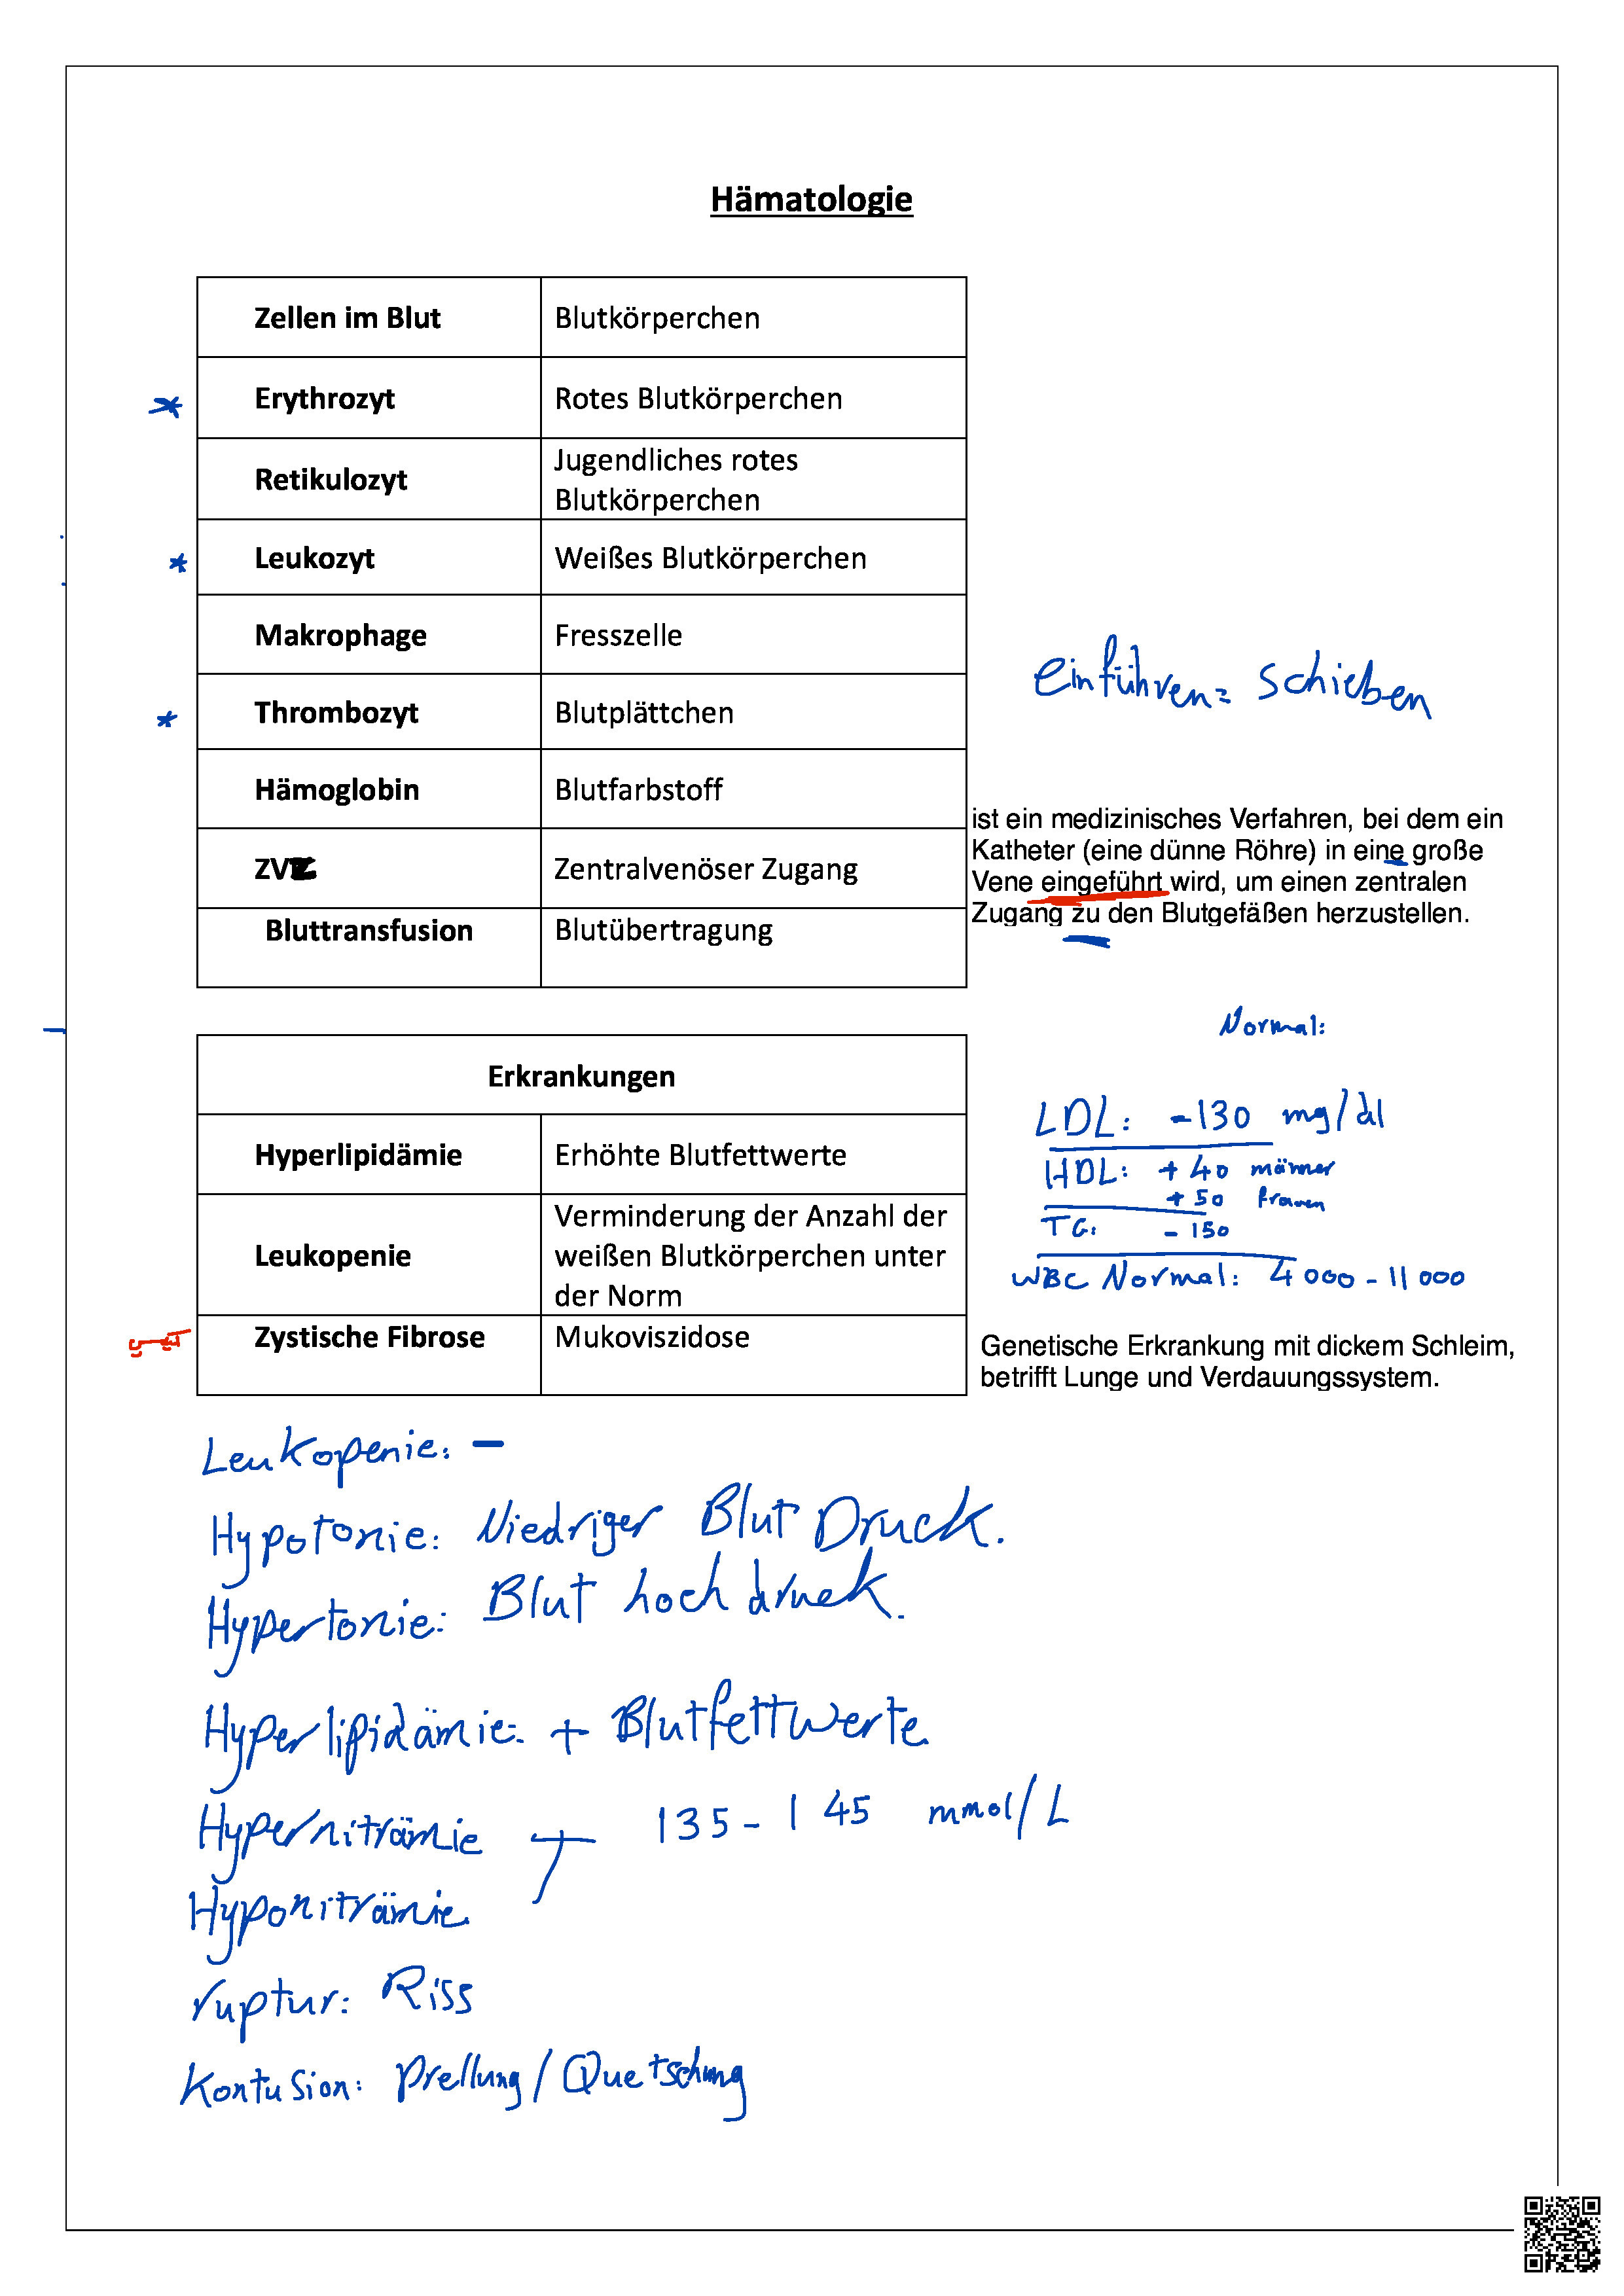 Hämatologie
Zellen im Blut Blutkörperchen
Erythrozyt Rotes Blutkörperchen
Retikulozyt Jugendliches rotes
Blutkörperchen
Leukozyt Weißes Blutkörperchen
Makrophage Fresszelle
einführen= schieben
Thrombozyt Blutplättchen
Hämoglobin Blutfarbstoff
ZVZ Zentralvenöser Zugang
ist ein medizinisches Verfahren, bei dem ein
Katheter (eine dünne Röhre) in eine große
Vene eingeführt wird, um einen zentralen
Zugang zu den Blutgefäßen herzustellen.
Bluttransfusion Blutübertragung
Erkrankungen
Hyperlipidämie Erhöhte Blutfettwerte
Leukopenie Verminderung der Anzahl der
weißen Blutkörperchen unter
der Norm
Zystische Fibrose Mukoviszidose
Normal:
LDL: -130 mg/dl
HDL: + 40 männer
+ 50 frauen
TG: - 150
WBC Normal: 4000 - 11000
Genetische Erkrankung mit dickem Schleim,
betrifft Lunge und Verdauungssystem.
Leukopenie: -
Hypotonie: Niedriger Blut Druck.
Hypertonie: Blut hoch druck.
Hyperlipidämie: + Blutfettwerte
Hyperniträmie 135 - 145 mmol/L
Hyponiträmie
ruptur: Riss
Kontusion: Prellung/Quetschung